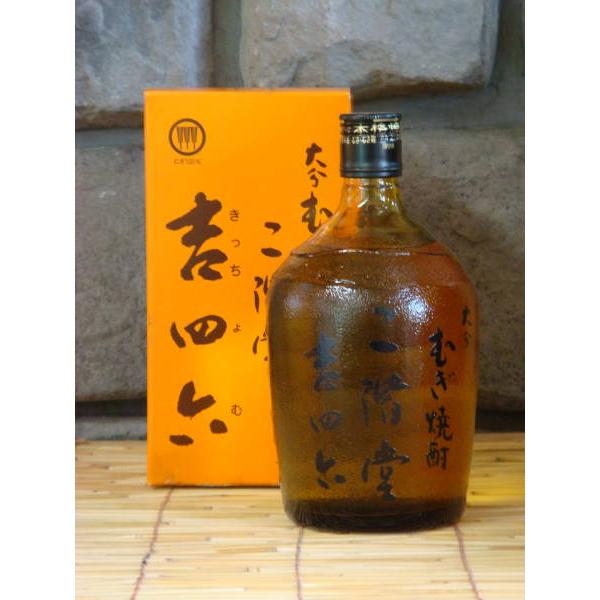 大分む
二階堂
吉四六
きっちょむ
本格焼
大分
むぎ焼酎
二階堂
吉四六